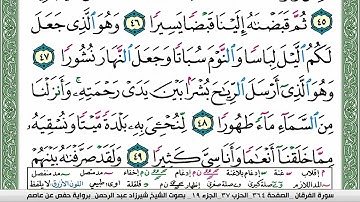 ٤٥ ثُمَّ قَبَضْنَٰهُ إِلَيْنَا قَبْضًا يَسِيرًا ٤٦ وَهُوَ الَّذِى جَعَلَ
لَكُمُ الَّيْلَ لِبَاسًا وَالنَّوْمَ سُبَاتًا وَجَعَلَ النَّهَارَ نُشُورًا ٤٧
وَهُوَ الَّذِىٓ أَرْسَلَ الرِّيَٰحَ بُشْرًۢا بَيْنَ يَدَىْ رَحْمَتِهِۦ ۚ وَأَنزَلْنَا
مِنَ السَّمَآءِ مَآءً طَهُورًا ٤٨ لِّنُحْـِۧىَ بِهِۦ بَلْدَةً مَّيْتًا وَنُسْقِيَهُۥ
مِمَّا خَلَقْنَآ أَنْعَٰمًا وَأَنَاسِىَّ كَثِيرًا ٤٩ وَلَقَدْ صَرَّفْنَٰهُ بَيْنَهُمْ
سورة الفرقان ـ الصفحة ٣٦٤ ـ الحزب ٣٧ ـ الجزء ١٩ ـ بصوت الشيخ شيرزاد عبد الرحمن ـ برواية حفص عن عاصم